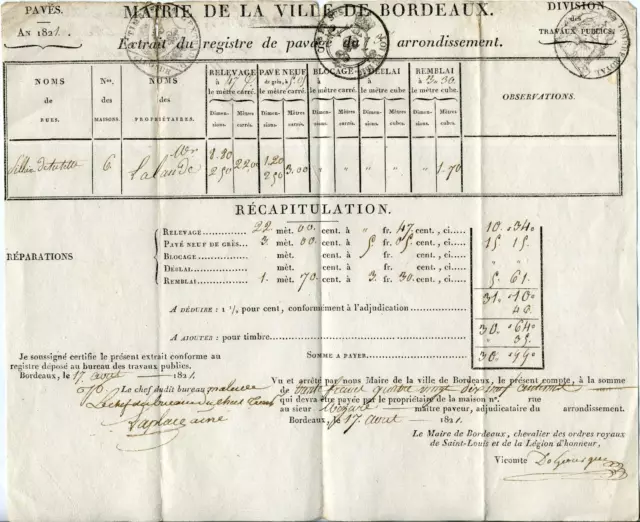 PAVÉS. MAIRIE DE LA VILLE DE BORDEAUX. DIVISION
AN 1821. des
TRAVAUX PUBLICS.
Extrait du registre de pavage du arrondissement.
NOMS
de
RUES.
Nos.
des
MAISONS.
NOMS
des
PROPRIÉTAIRES.
RELEVAGE
à 47 c
le mètre carré.
PAVÉ NEUF
de grès, à 5.05
le mètre carré.
BLOCAGE
à
le mètre carré.
DÉBLAI
à
le mètre cube.
REMBLAI
à 3.30
le mètre cube.
OBSERVATIONS.
Dimensions. Mètres carrés. Dimensions. Mètres carrés. Dimensions. Mètres carrés. Dimensions. Mètres cubes. Dimensions. Mètres cubes.
6. Lalande 22.00 1.20 3.00 " " " " 1.70
2.50 2.50
RÉCAPITULATION.
RÉPARATIONS
RELEVAGE 22 mèt. 00 cent. à " fr. 47 cent., ci 10. 34
PAVÉ NEUF DE GRÈS 3 mèt. 00 cent. à 5 fr. 05 cent., ci 15. 15
BLOCAGE mèt. cent. à fr. cent., ci " "
DÉBLAI mèt. cent. à fr. cent., ci " "
REMBLAI 1. mèt. 70 cent. à 3. fr. 30 cent., ci 5. 61
31. 10
A DÉDUIRE : 1 %, pour cent, conformément à l'adjudication 40
30. 64
A AJOUTER : pour timbre " 35
SOMME A PAYER 30. 99
Je soussigné certifie le présent extrait conforme au
registre déposé au bureau des travaux publics.
Bordeaux, le 17 avril 1821.
Le chef dudit bureau
Vu et arrêté par nous Maire de la ville de Bordeaux, le présent compte, à la somme
de trente francs quatre vingt dix neuf centimes
qui devra être payée par le propriétaire de la maison n.° rue
au sieur maître paveur, adjudicataire du arrondissement.
Bordeaux, le 17 avril 1821.
Le Maire de Bordeaux, chevalier des ordres royaux
de Saint-Louis et de la Légion d'honneur,
Vicomte